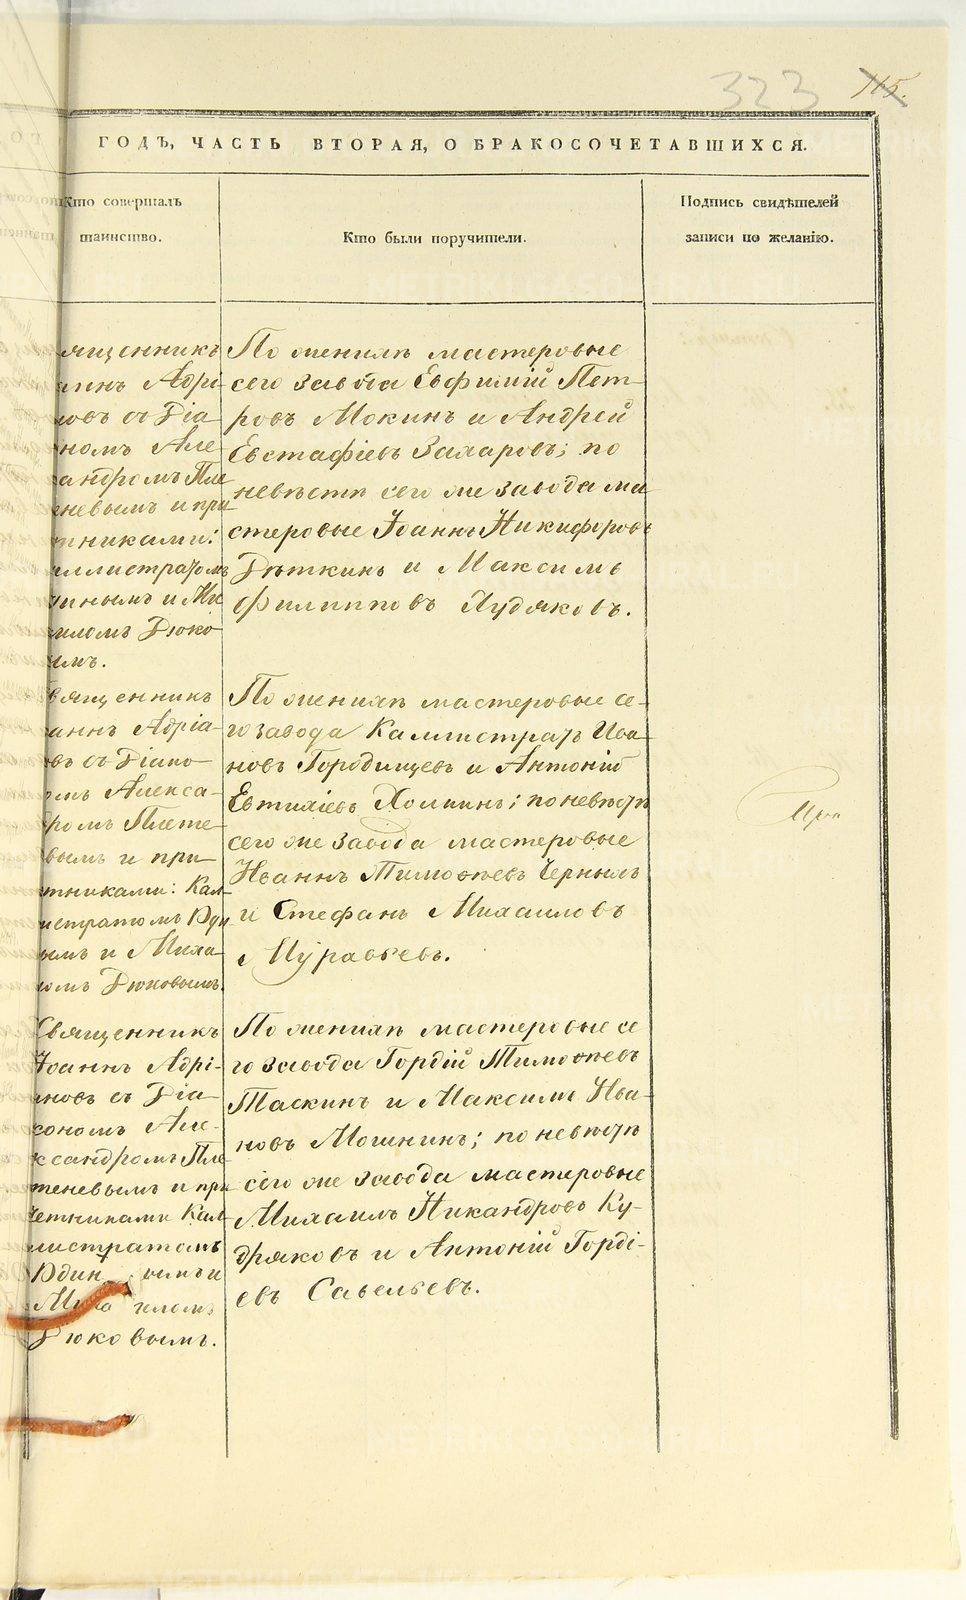 323
115.
ГОДЪ, ЧАСТЬ ВТОРАЯ, О БРАКОСОЧЕТАВШИХСЯ.
Кто совершалъ
таинство.
Кто были поручители.
Подпись свидѣтелей
записи по желанію.
ященникъ
аннъ Адрі-
новъ съ Діа-
номъ Але-
андромъ Пле
еневымъ и при
тниками:
ллистратомъ
инымъ и Ми
иломъ Дюко
ымъ.
По женихѣ мастеровые
сего завода Евфимій Пет-
ровъ Мокинъ и Андрей
Евстафіевъ Захаровъ; по
невѣстѣ сего же завода ма
стеровые Іоаннъ Никифоровъ
Рѣткинъ и Максимъ
Филипповъ Худяковъ.
вященникъ
аннъ Адріа-
овъ съ Діако-
омъ Алекса-
ромъ Плете-
вымъ и при-
тниками: Кал-
истратомъ Оди
ымъ и Миха-
ломъ Дюковымъ.
По женихѣ мастеровые се-
го завода Каллистратъ Ива-
новъ Городищевъ и Антоній
Евтихіевъ Холкинъ; по невѣстѣ
сего же завода мастеровые
Иваннъ Тимофѣевъ Черныхъ
и Стефанъ Михаиловъ
Муравьевъ.
Священникъ
Іоаннъ Адрі-
ановъ съ Діа-
кономъ Але-
ксандромъ Пле
теневымъ и при
четниками Кал-
листратомъ
Один ымъ и
Миха иломъ
Дюковымъ.
По женихѣ мастеровые се
го завода Гордій Тимофѣевъ
Таскинъ и Максимъ Ива-
новъ Мошнинъ; по невѣстѣ
сего же завода мастеровые
Михаилъ Никандровъ Ку-
дряковъ и Антоній Горді-
евъ Савельевъ.